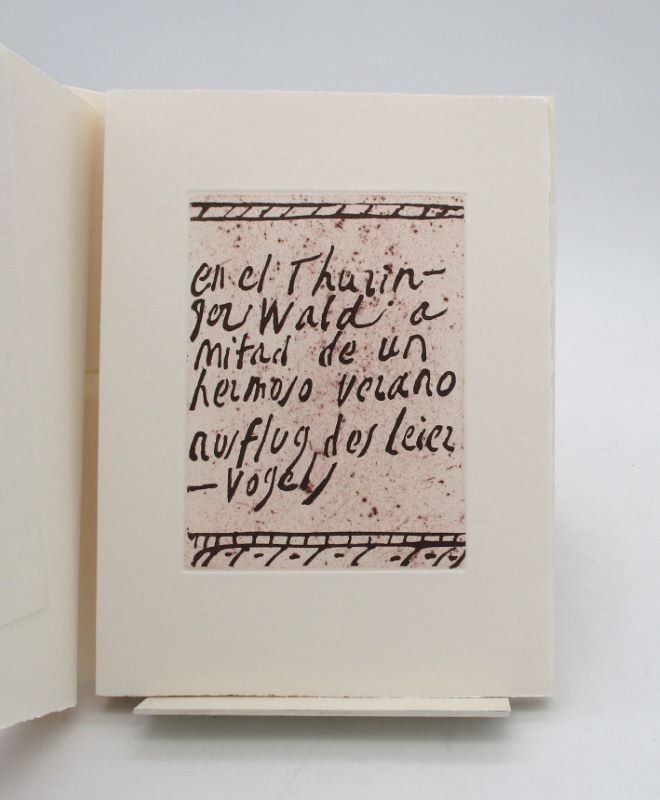 en el Thurin-
ger Wald a
mitad de un
hermoso verano
ausflug des Leier
-Vogels